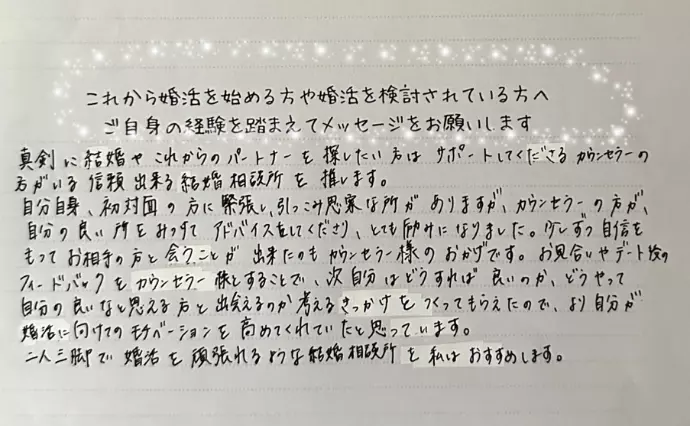 これから婚活を始める方や婚活を検討されている方へ
ご自身の経験を踏まえてメッセージをお願いします
真剣に結婚やこれからのパートナーを探したい方はサポートしてくださるカウンセラーの
方がいる信頼出来る結婚相談所を推します。
自分自身、初対面の方に緊張し、引っこみ思案な所がありますが、カウンセラーの方が、
自分の良い所をみつけてアドバイスをしてくださり、とても励みになりました。少しずつ自信を
もってお相手の方と会うことが出来たのもカウンセラー様のおかげです。お見合いやデート後の
フィードバックをカウンセラー様とすることで、次自分はどうすれば良いのか、どうやって
自分の良いなと思える方と出会えるのか考えるきっかけをつくってもらえたので、より自分が
婚活に向けてのモチベーションを高めてくれていたと思っています。
二人三脚で婚活を頑張れるような結婚相談所を私はおすすめします。